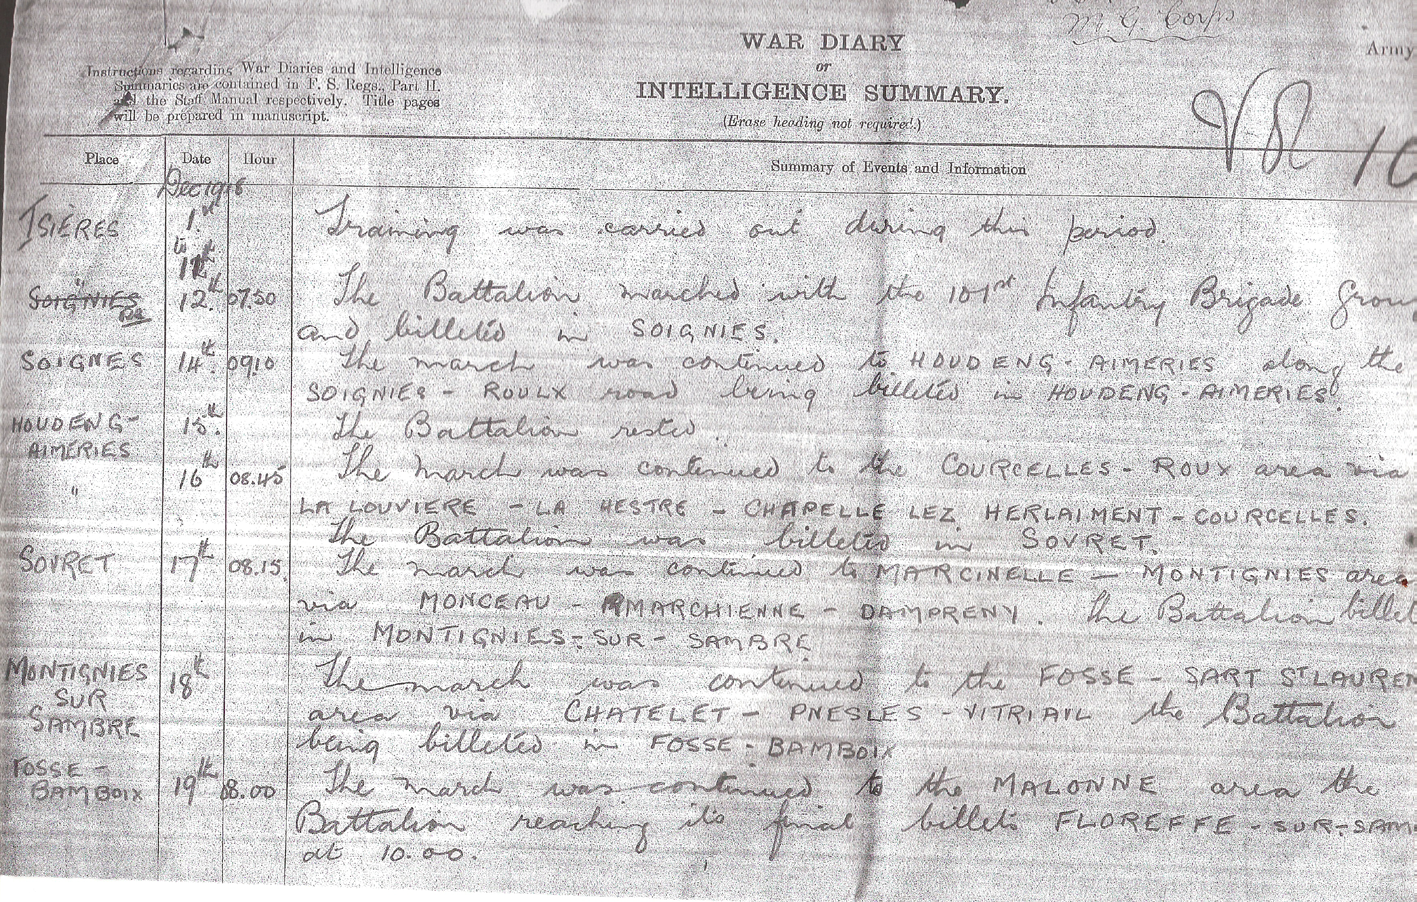 M G Corps
Army
WAR DIARY
or
INTELLIGENCE SUMMARY.
(Erase heading not required.)
Instructions regarding War Diaries and Intelligence
Summaries are contained in F. S. Regs., Part II.
and the Staff Manual respectively. Title pages
will be prepared in manuscript.
Place Date Hour Summary of Events and Information
Dec 1918
ISIÈRES 1st to 11th Training was carried out during this period.
SOIGNIES 12th 07.50 The Battalion marched with the 101st Infantry Brigade Grou
and billeted in SOIGNIES.
SOIGNES 14th 09.10 The march was continued to HOUDENG - AIMERIES along the
SOIGNIES - ROULX road being billeted in HOUDENG - AIMERIES.
HOUDENG - AIMERIES 15th The Battalion rested.
" 16th 08.45 The march was continued to the COURCELLES - ROUX area via
LA LOUVIERE - LA HESTRE - CHAPELLE LEZ HERLAIMENT - COURCELLES.
The Battalion was billeted in SOVRET.
SOVRET 17th 08.15. The march was continued to MARCINELLE - MONTIGNIES area
via MONCEAU - MARCHIENNE - DAMPRENY. The Battalion billet
in MONTIGNIES - SUR - SAMBRE
MONTIGNIES SUR SAMBRE 18th The march was continued to the FOSSE - SART ST LAUREN
area via CHATELET - PNESLES - VITRIAVL the Battalion
being billeted in FOSSE - BAMBOIX
FOSSE - BAMBOIX 19th 08.00 The march was continued to the MALONNE area the
Battalion reaching its final billets FLOREFFE - SUR - SAM
at 10.00.